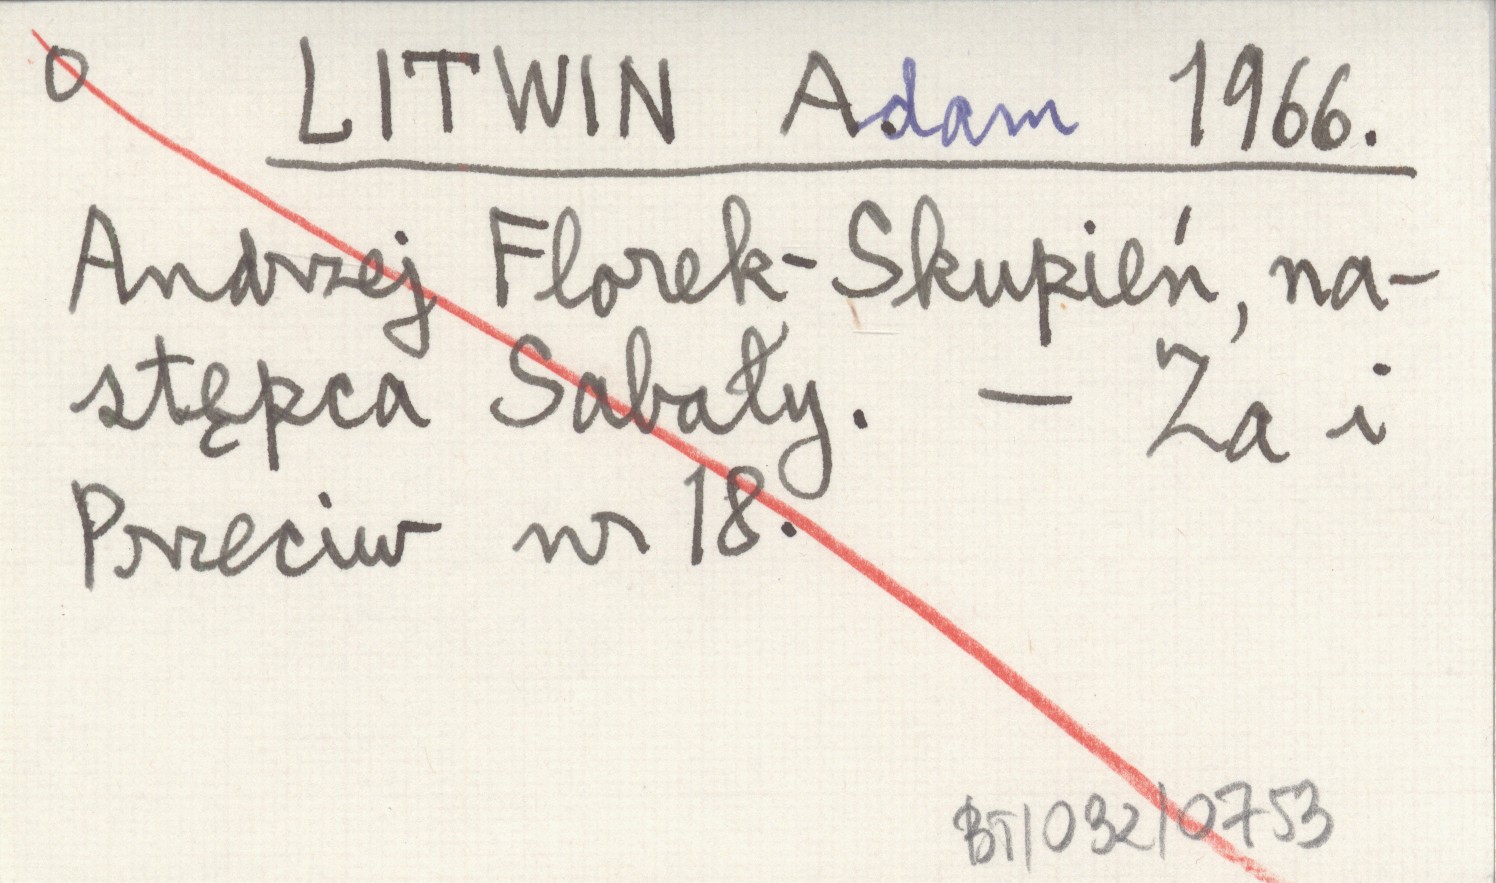 O LITWIN A.dam 1966.
Andrzej Florek-Skupień, na-
stępca Sabały. — Za i
Przeciw nr 18.
BT/032/0753